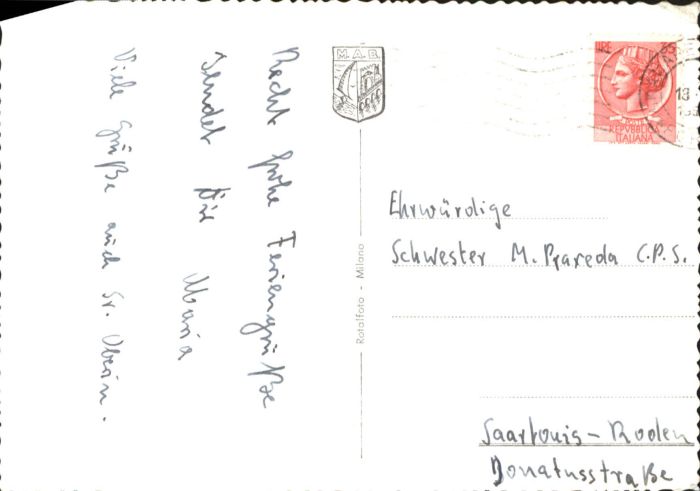 Recht frohe Feriengrüße
sendet Dir
Maria
Viele Grüße auch Sr. Oberin.
M.A.B.
Rotalfoto - Milano
LIRE 25
POSTE
REPVBBLICA
ITALIANA
13
Ehrwürdige
Schwester M. Praxeda C.P.S.
Saarlouis - Roden
Donatusstraße